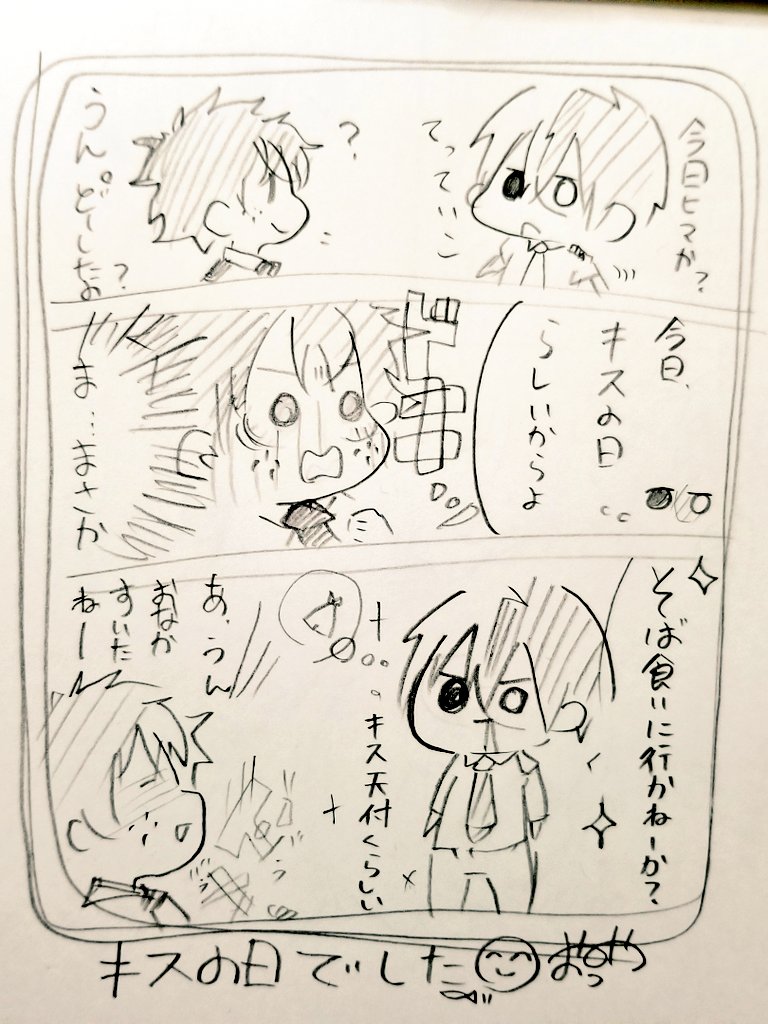 今日ヒマか?
てっていこ
?
うん、どーしたの?
今日、
キスの日
らしいからよ
ま…まさか
そば食いに行かねーか?
キス天付くらしい
あ、うん
おなか
すいた
ねー
キスの日でした